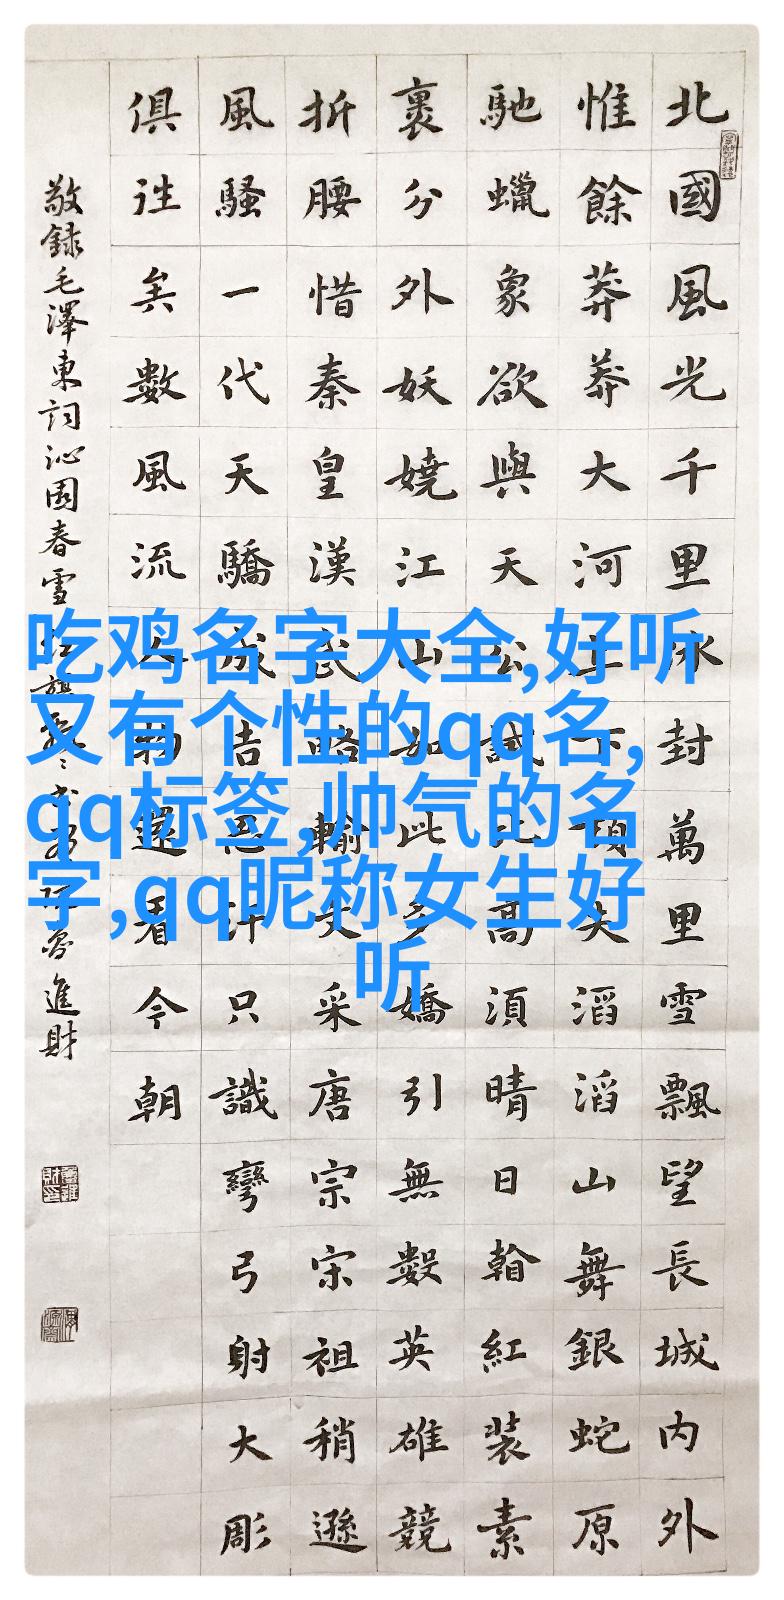 北國風光千里冰封萬里雪飄望長城内外
惟餘莽莽大河上下頓失滔滔山舞銀蛇原
馳蠟象欲與天公試比高須晴日看紅裝素
裹分外妖嬈江山如此多嬌引無數英雄競
折腰惜秦皇漢武略輸文采唐宗宋祖稍遜
風騷一代天驕成吉思汗只識彎弓射大彫
俱往矣數風流人物還看今朝
敬録毛澤東詞沁園春雪 魯進財
吃鸡名字大全,好听
又有个性的qq名,
qq标签,帅气的名
字,qq昵称女生好
听